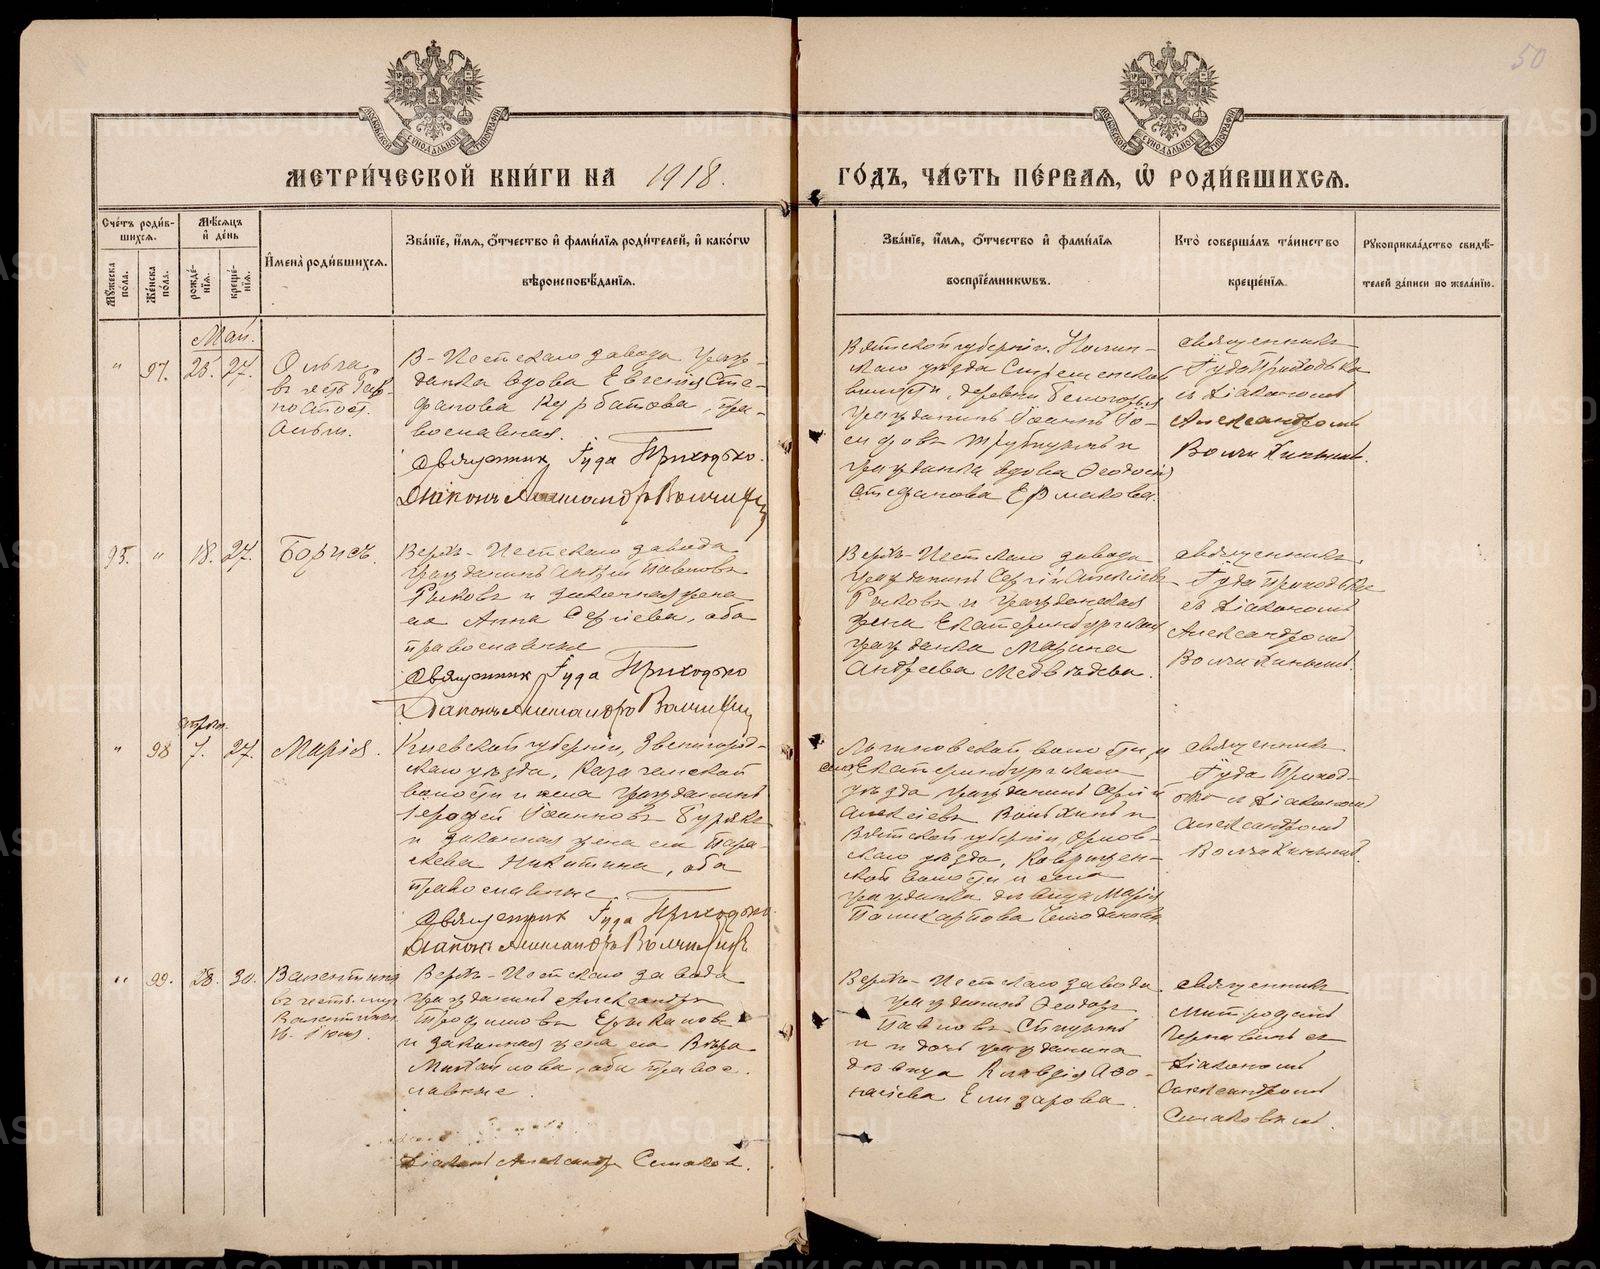 50
МЕТРИ́ЧЕСКОЙ КНИ́ГИ НА 1918.
ГО́ДЪ, ЧА́СТЬ ПЕ́РВАЯ, Ѡ҆ РОДИ́ВШИХСЯ.
Сче́тъ роди́вшихся.
Му́жеска по́ла.
Же́нска по́ла.
Мѣ́сяцъ и҆ де́нь
рожде́нїя.
креще́нїя.
И҆мена̀ роди́вшихся.
Зва́нїе, и҆́мя, о҆́тчество и҆ фами́лїя роди́телей, и҆ како́гѡ
вѣроисповѣ́данїя.
Зва́нїе, и҆́мя, о҆́тчество и҆ фами́лїя
воспрїе́мникѡвъ.
Кто̀ соверша́лъ та́инство
креще́нїя.
Рꙋкоприкла́дство свидѣ́-
телей за́писи по жела́нїю.
Май.
" 97. 25. 27.
Ольга,
въ честь
Ольги.
В-Исетскаго завода граж-
данка вдова Евгенія Сте-
фанова Курбатова, пра-
вославная.
Священник Гуда Приходько.
Діаконъ Александръ Волчихин
Вятской губерніи, Нолин-
скаго уѣзда Сретенской
волости, деревни
гражданинъ Іоаннъ Іо-
сифовъ и
гражданка вдова Ѳеодосія
Стефанова Ермакова.
священникъ
Гуда Приходько
съ діакономъ
Александромъ
Волчихинымъ.
95. " 18. 27.
Борисъ.
Верхъ-Исетскаго завода
гражданинъ Андрей Павловъ
Рыковъ и законная жена
его Анна Сергіева, оба
православные
Священник Гуда Приходько
Діаконъ Александръ Волчихин
Верхъ-Исетскаго завода
гражданинъ Сергій Алексіевъ
Рыковъ и гражданская
жена Екатеринбургская
гражданка Марина
Андреева Медвѣдева.
священникъ
Гуда Приходько
съ діакономъ
Александромъ
Волчихинымъ.
" 98 7. 27.
Марія.
Кіевской губерніи, Звенигород-
скаго уѣзда, Казачанской
волости и села гражданинъ
Іерофей Іоанновъ Буряк
и законная жена его Пара-
скева Никитина, оба
православные
Священник Гуда Приходько.
Діаконъ Александръ Волчихинъ
волости, и
села, Екатеринбургскаго
уѣзда гражданинъ Сергій
Алексіевъ и
Вятской губерніи, Орлов-
скаго уѣзда,
кой волости и села
гражданка дѣвица Марія
Поликарпова Чемоданова
священникъ
Гуда Приход-
ько съ діакономъ
Александромъ
Волчихинымъ.
" 99. 28. 30.
Валентина
въ честь муч.
Валентины
10. Іюня.
Верхъ-Исетскаго завода
гражданинъ Александръ
Трофимовъ
и законная жена его Вѣра
Михайлова, оба правос-
лавные.
Діаконъ Александръ Симаков.
Верхъ-Исетскаго завода
гражданинъ Ѳеодоръ
Павловъ
и дочь гражданина
дѣвица Клавдія Аѳо-
насіева Елизарова.
священникъ
Митрофанъ
съ
діакономъ
Александромъ
Симаковымъ.
METRIKI.GASO-URAL.RU